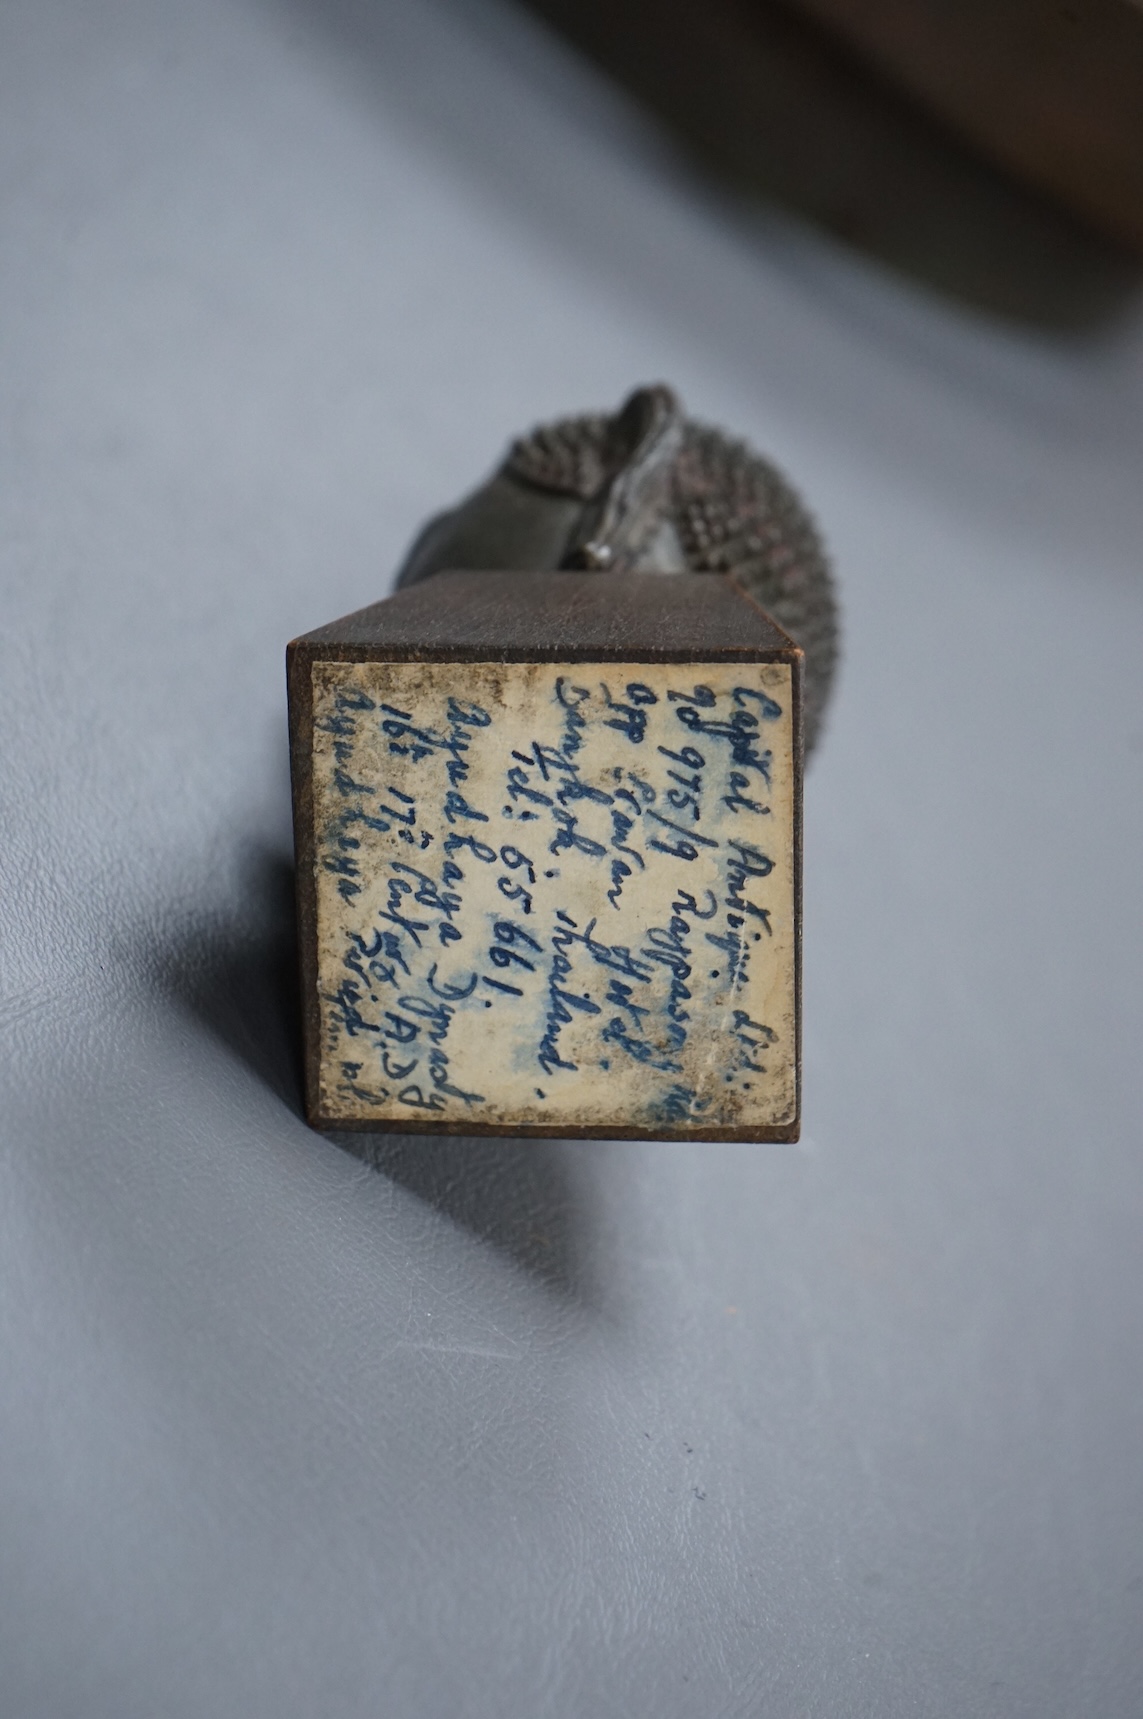 Capital Antique Ltd:
90 975/9
opp Erawan Hotel.
Bangkok. Thailand.
Tel: 55661.
Ayudhaya Dynasty
16th 17th Century A.D
Ayudhya